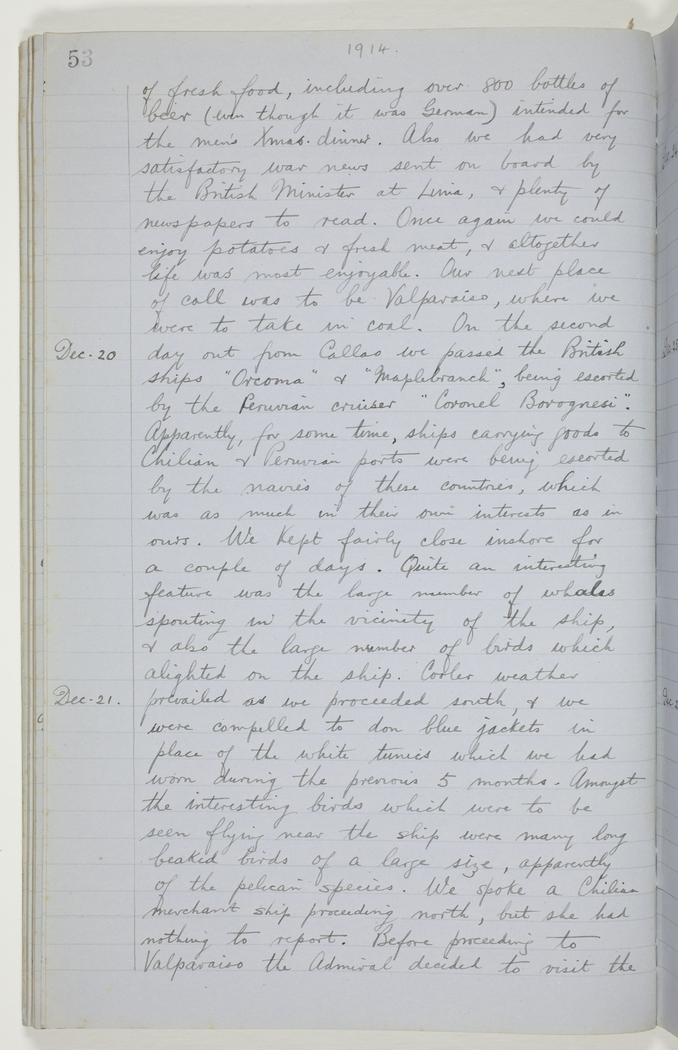 53
1914.
of fresh food, including over 800 bottles of
beer (even though it was German) intended for
the men's Xmas. dinner. Also we had very
satisfactory war news sent on board by
the British Minister at Lima, & plenty of
newspapers to read. Once again we could
enjoy potatoes & fresh meat, & altogether
life was most enjoyable. Our next place
of call was to be Valparaiso, where we
were to take in coal. On the second
Dec. 20 day out from Callao we passed the British
ships "Orcoma" & "Maplebranch", being escorted
by the Peruvian cruiser "Coronel Borognesi".
Apparently, for some time, ships carrying goods to
Chilian & Peruvian ports were being escorted
by the navies of these countries, which
was as much in their own interests as in
ours. We kept fairly close inshore for
a couple of days. Quite an interesting
feature was the large number of whales
spouting in the vicinity of the ship,
& also the large number of birds which
alighted on the ship. Cooler weather
Dec. 21. prevailed as we proceeded south, & we
were compelled to don blue jackets in
place of the white tunics which we had
worn during the previous 5 months. Amongst
the interesting birds which were to be
seen flying near the ship were many long
beaked birds of a large size, apparently
of the pelican species. We spoke a Chilian
merchant ship proceeding north, but she had
nothing to report. Before proceeding to
Valparaiso the Admiral decided to visit the